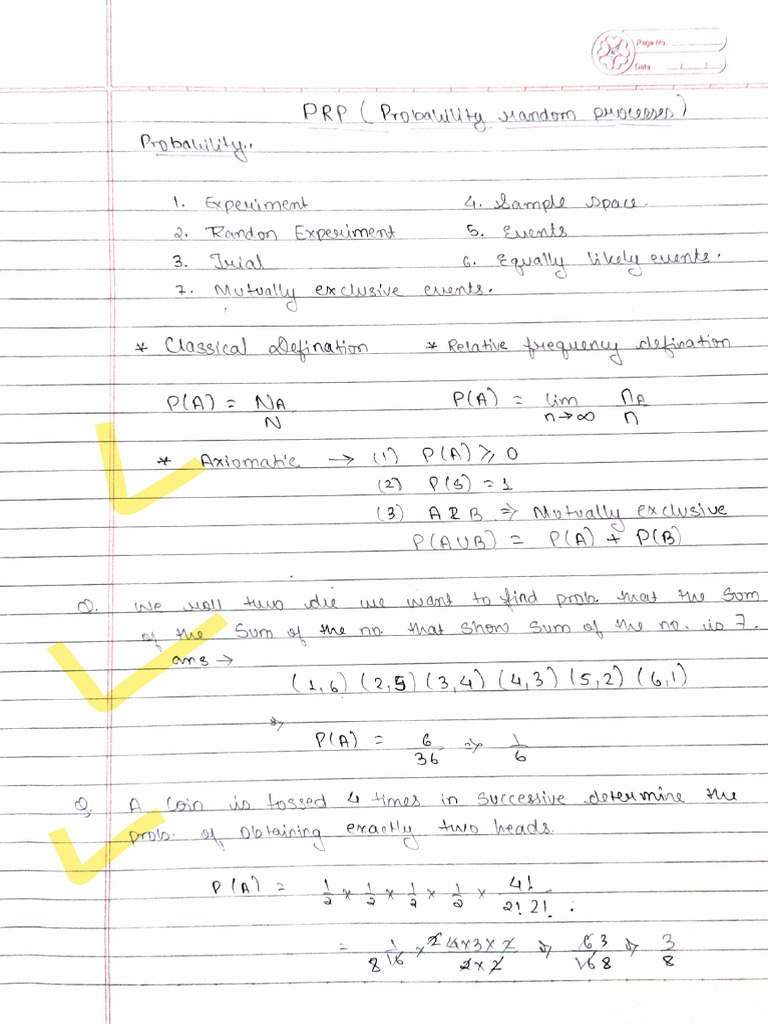 Page No
Date / /
PRP ( Probability random processes)
Probability..
1. Experiment 4. Sample space.
2. Randon Experiment 5. Events
3. Trial 6. Equally likely events.
7. Mutually exclusive events.
* Classical Defination * Relative frequency defination
P(A) = NA/N P(A) = lim n→∞ nA/n
* Axiomatic → (1) P(A) ⩾ 0
(2) P(S) = 1
(3) A & B ⇒ Mutually exclusive
P(AUB) = P(A) + P(B)
Q. We roll two die we want to find prob. that the sum
of the sum of the no. that show sum of the no. is 7.
ans →
(1,6) (2,5) (3,4) (4,3) (5,2) (6,1)
⇒
P(A) = 6/36 ⇒ 1/6
Q. A Coin is tossed 4 times in successive determine the
prob. of obtaining exactly two heads.
P(A) = 1/2 × 1/2 × 1/2 × 1/2 × 4!/2!2!.
= 1/16 8 × 2 4×3×2/2×2 ⇒ 6 3/16 8 ⇒ 3/8